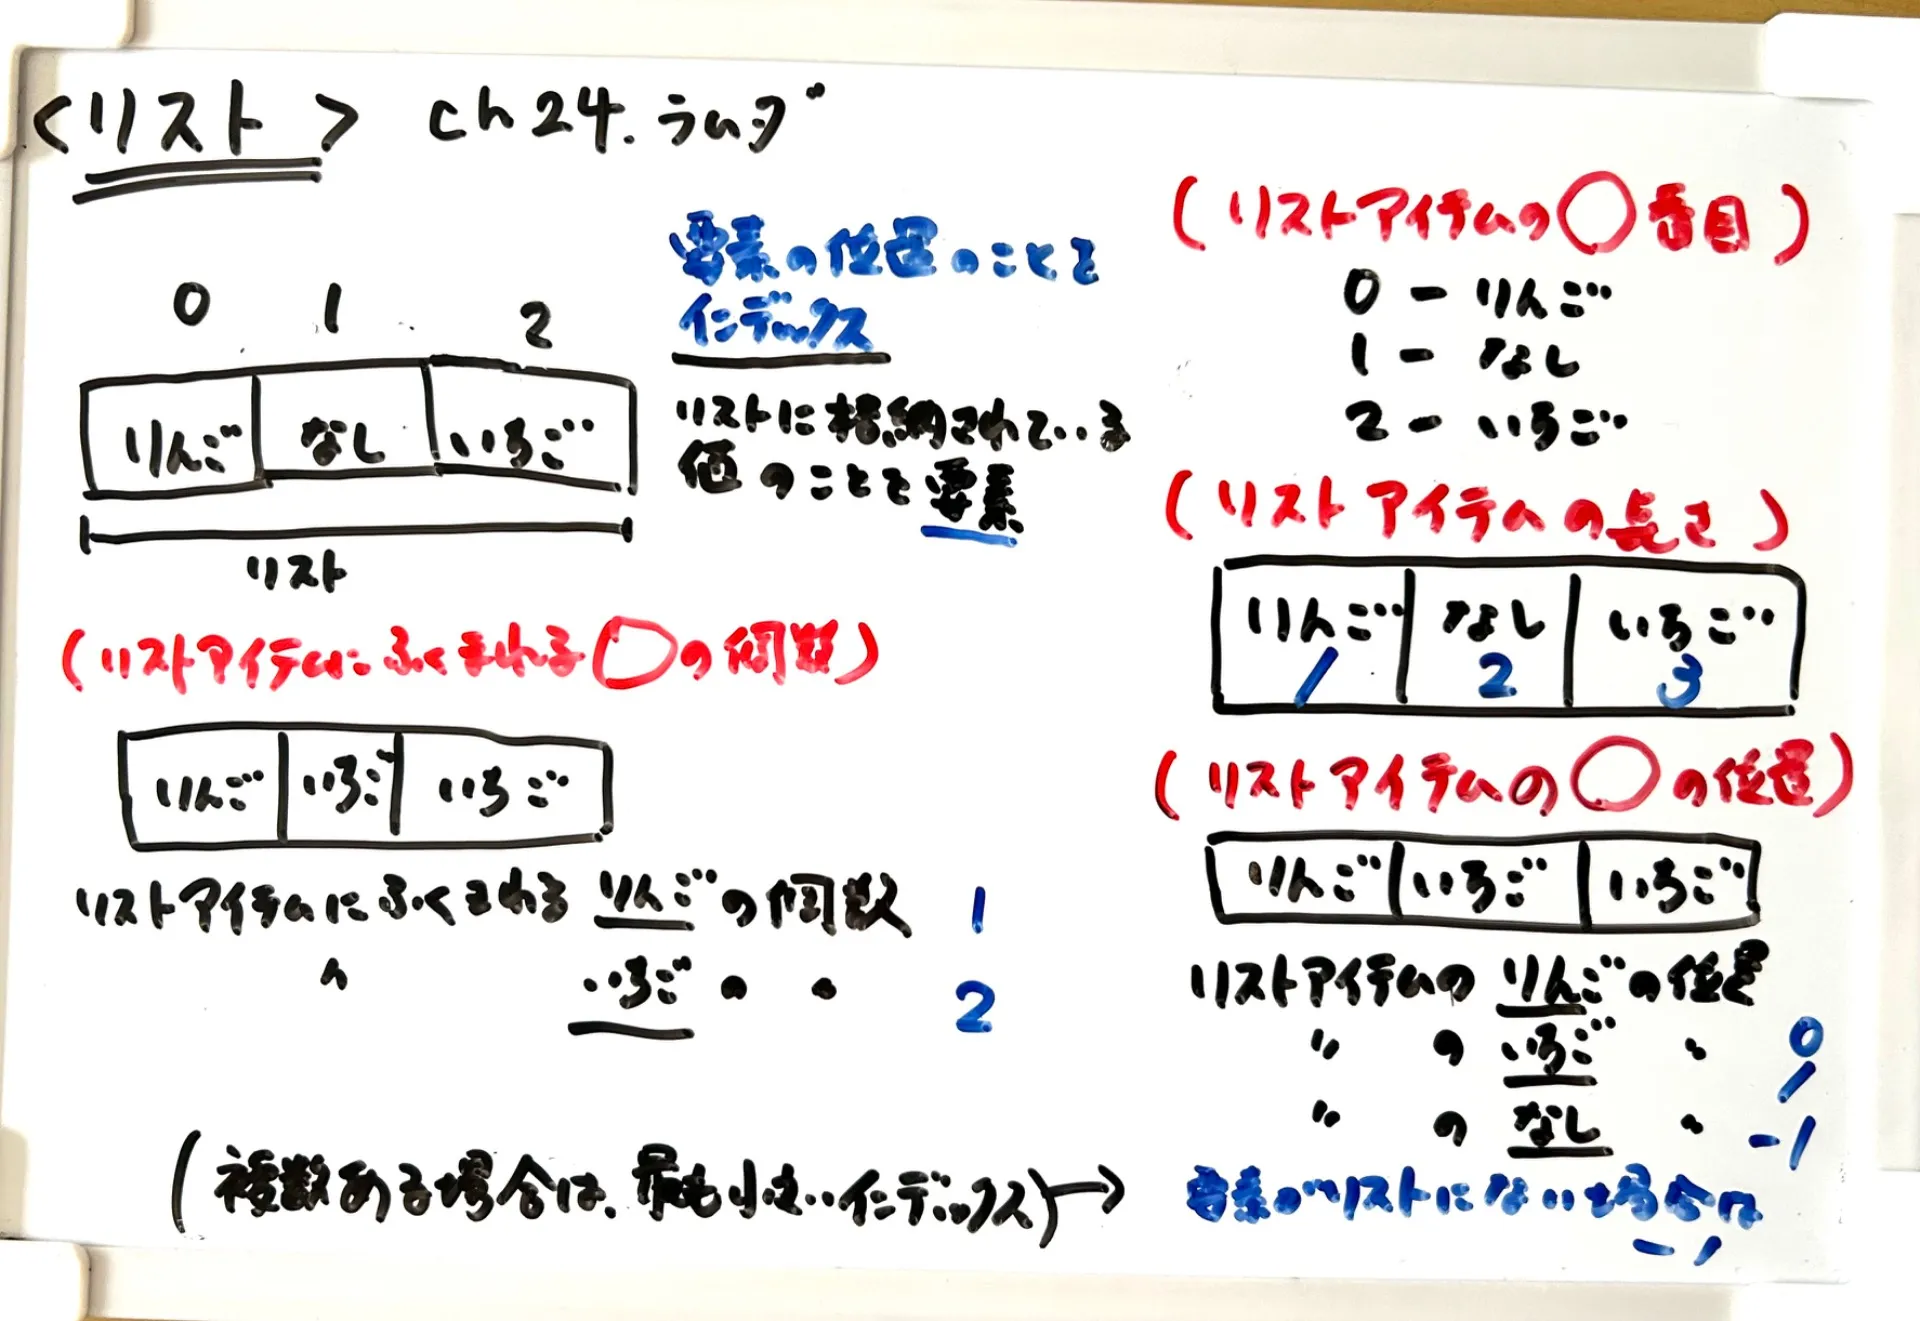 <リスト> ch24.ラムダ
0 1 2
りんご なし いちご
リスト
要素の位置のことを
インデックス
リストに格納されている
値のことを要素
(リストアイテムにふくまれる◯の個数)
りんご いちご いちご
リストアイテムにふくまれるりんごの個数 1
〃 いちご 〃 〃 2
(複数ある場合は、最も小さいインデックス)→
(リストアイテムの◯番目)
0 - りんご
1 - なし
2 - いちご
(リストアイテムの長さ)
りんご なし いちご
1 2 3
(リストアイテムの◯の位置)
りんご いちご いちご
リストアイテムのりんごの位置
〃 の いちご 〃 0
1
〃 の なし 〃 -1
要素がリストにない場合は
-1